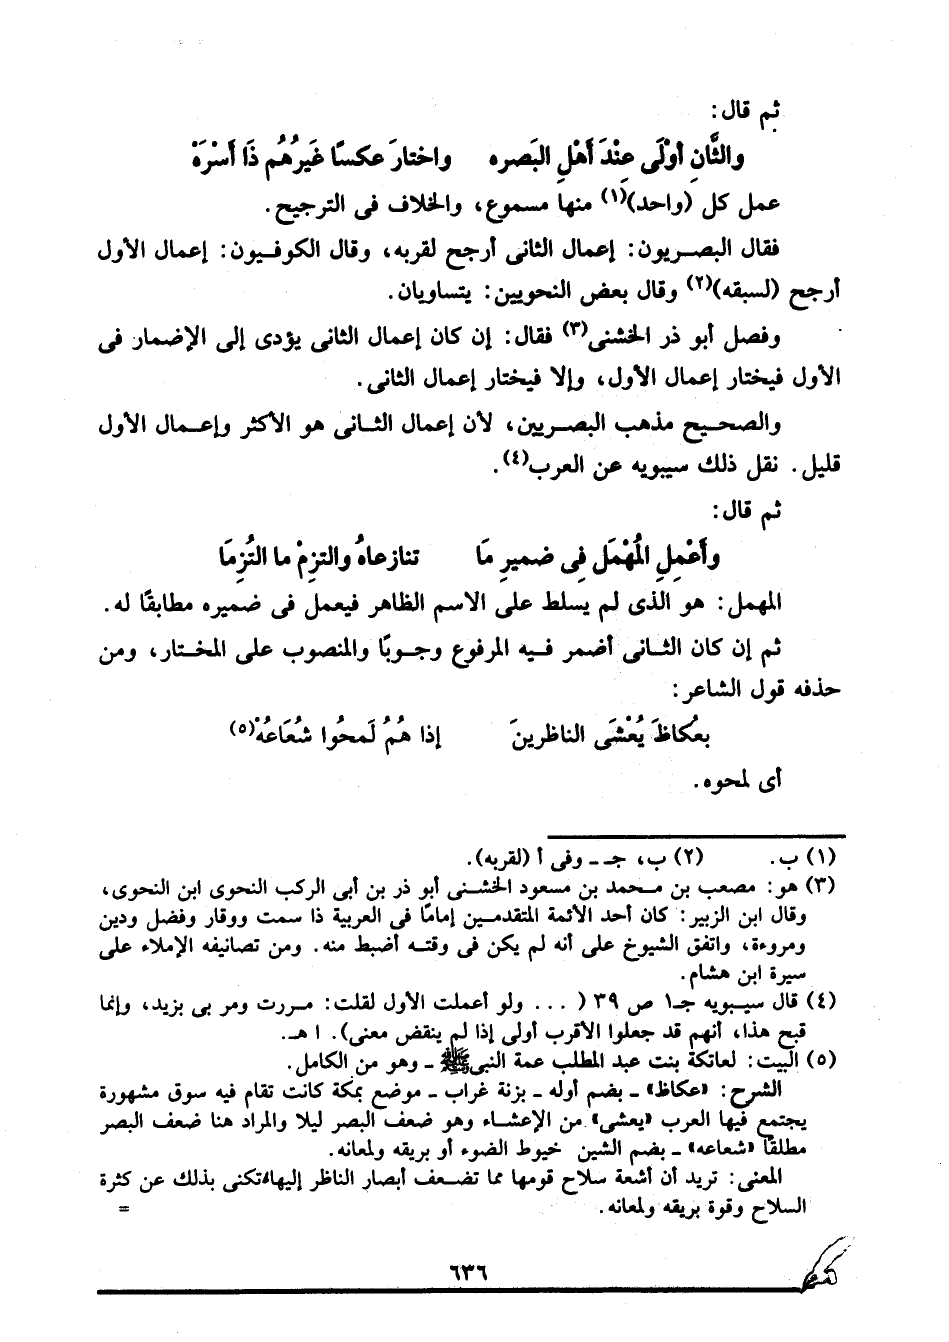 ثم قال:
والثَّانِ أوْلَى عِنْدَ أَهْلِ البَصره واختارَ عكسًا غَيرُهُم ذَا أَسْرَهْ
عمل كل (واحد)(١) منها مسموع، والخلاف فى الترجيح.
فقال البصريون: إعمال الثانى أرجح لقربه، وقال الكوفيون: إعمال الأول
أرجح (لسبقه)(٢) وقال بعض النحويين: يتساويان.
وفصل أبو ذر الخشنى(٣) فقال: إن كان إعمال الثانى يؤدى إلى الإضمار فى
الأول فيختار إعمال الأول، وإلا فيختار إعمال الثانى.
والصحيح مذهب البصريين، لأن إعمال الثانى هو الأكثر وإعمال الأول
قليل. نقل ذلك سيبويه عن العرب(٤).
ثم قال:
وأَعْمِلِ المُهْمَل فِى ضميرِ مَا تنازعاهُ والتزِمْ ما التُزِمَا
المهمل: هو الذى لم يسلط على الاسم الظاهر فيعمل فى ضميره مطابقًا له.
ثم إن كان الثانى أضمر فيه المرفوع وجوبًا والمنصوب على المختار، ومن
حذفه قول الشاعر:
بعُكاظَ يُعْشَى الناظرينَ إذا هُمُ لَمحُوا شُعَاعُهْ(٥)
أى لمحوه.
(١) ب. (٢) ب، جـ - وفى أ (لقربه).
(٣) هو: مصعب بن محمد بن مسعود الخشنى أبو ذر بن أبى الركب النحوى ابن النحوى،
وقال ابن الزبير: كان أحد الأئمة المتقدمين إمامًا فى العربية ذا سمت ووقار وفضل ودين
ومروءة، واتفق الشيوخ على أنه لم يكن فى وقته أضبط منه. ومن تصانيفه الإملاء على
سيرة ابن هشام.
(٤) قال سيبويه جـ١ ص ٣٩ ( ... ولو أعملت الأول لقلت: مررت ومر بى بزيد، وإنما
قبح هذا، أنهم قد جعلوا الأقرب أولى إذا لم ينقض معنى). ا هـ.
(٥) البيت: لعاتكة بنت عبد المطلب عمة النبى ﷺ - وهو من الكامل.
الشرح: «عكاظ» - بضم أوله - بزنة غراب - موضع بمكة كانت تقام فيه سوق مشهورة
يجتمع فيها العرب «يعشى» من الإعشاء وهو ضعف البصر ليلا والمراد هنا ضعف البصر
مطلقًا «شعاعه» - بضم الشين خيوط الضوء أو بريقه ولمعانه.
المعنى: تريد أن أشعة سلاح قومها مما تضعف أبصار الناظر إليها، تكنى بذلك عن كثرة
السلاح وقوة بريقه ولمعانه. =
٦٣٦